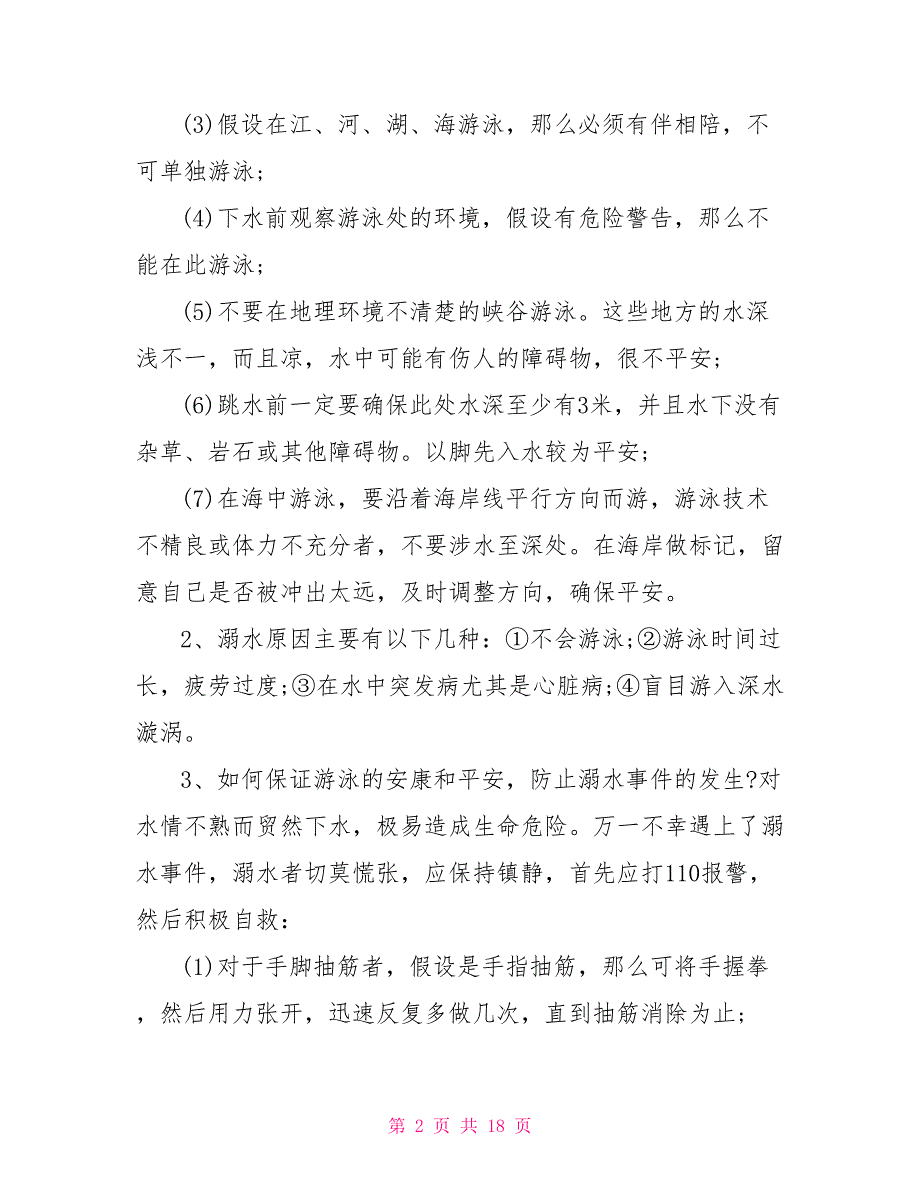 (3)假设在江、河、湖、海游泳，那么必须有伴相陪，不
可单独游泳;
(4)下水前观察游泳处的环境，假设有危险警告，那么不
能在此游泳;
(5)不要在地理环境不清楚的峡谷游泳。这些地方的水深
浅不一，而且凉，水中可能有伤人的障碍物，很不平安;
(6)跳水前一定要确保此处水深至少有3米，并且水下没有
杂草、岩石或其他障碍物。以脚先入水较为平安;
(7)在海中游泳，要沿着海岸线平行方向而游，游泳技术
不精良或体力不充分者，不要涉水至深处。在海岸做标记，留
意自己是否被冲出太远，及时调整方向，确保平安。
2、溺水原因主要有以下几种：①不会游泳;②游泳时间过
长，疲劳过度;③在水中突发病尤其是心脏病;④盲目游入深水
漩涡。
3、如何保证游泳的安康和平安，防止溺水事件的发生?对
水情不熟而贸然下水，极易造成生命危险。万一不幸遇上了溺
水事件，溺水者切莫慌张，应保持镇静，首先应打110报警，
然后积极自救：
(1)对于手脚抽筋者，假设是手指抽筋，那么可将手握拳
，然后用力张开，迅速反复多做几次，直到抽筋消除为止;
第 2 页 共 18 页